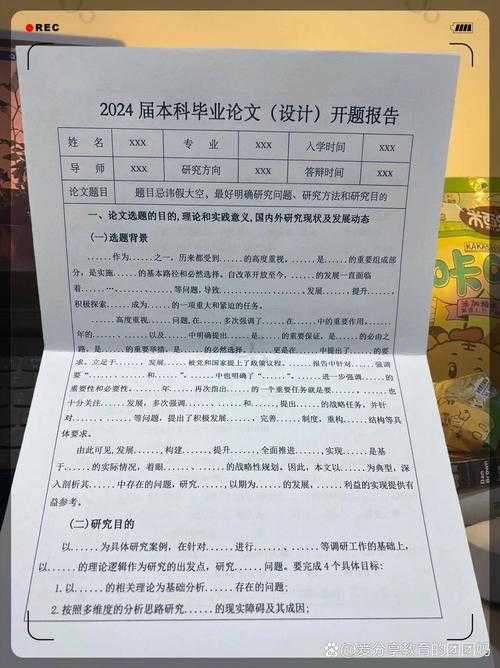 REC
2024届本科毕业论文（设计）开题报告
姓 名 xxx 专 业 xxx 入学时间 xxx
导 师 xxx 研究方向 xxx 答辩时间 xxx
论文题目 题目忌讳假大空，最好明确研究问题、研究方法和研究目的
一、论文选题的目的,理论和实践意义,国内外研究现状及发展动态
(一)选题背景
......作为......之一，历来都受到......的高度重视。......是......的重要组成部
分，是实施......的基本路径和必然选择。自改革开放至今，......的发展一直面临
着......…、............等问题,导致............发展、......提升。
积极探索......成为......的一项重大和紧迫的任务。
......高度重视......问题,在......多次强调了......在......中的重要作用。......
年的......、......以及......中明确提出......是......的重要保证，是......的必由之
路，是......的重要举措，是......的必然选择。......更是在......中提出了......的要
求。立足于......、发展......被党和国家提上了政策议程。......报告中针对......强调
要“............和............中也明确了“......”......进一步强调......的
重要性和必要性。......年......再次指出......的一个重要任务就是要......。......也
十分关注......发展，多次强调......、......和......提出......的战略任务，并针
对......、......等问题，提出了积极发展......、完善......制度，重构......结构等具
体要求。
由此可见,发展......,构建......,提升......,全面推进......,实现......是基
于......的实际情况，着眼......、......的战略性规划。因此，本文以......为典型，深
入剖析其......中存在的问题，研究......，以期为......的发展、......利益的实现提供有
益参考。
(二)研究目的
以......为具体研究案例，在针对......进行......、......等调研工作的基础上，
以......的理论逻辑作为研究的出发点，研究......问题。要完成4个具体目标:
1.以......的相关理论为基础分析......存在的问题;
2.按照多维度的分析思路研究......的现实障碍及其成因;
KAKA
Dan Brown
@爱分享教育的团团呐